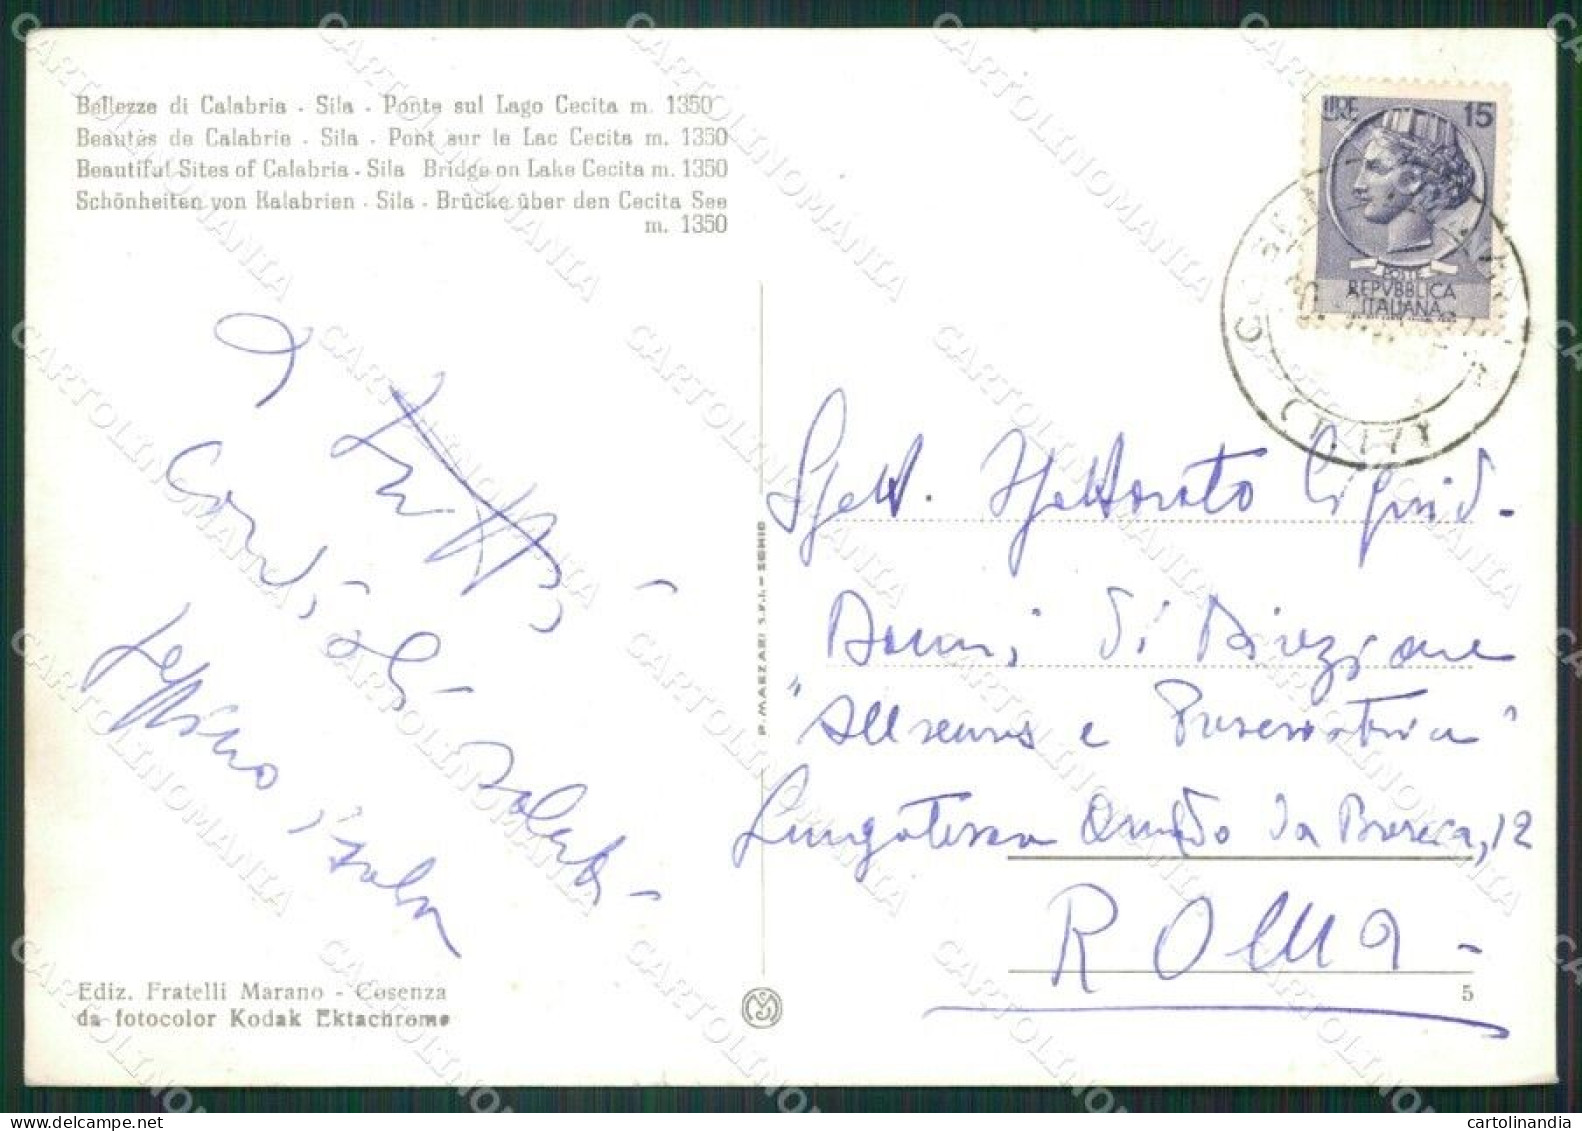 Bellezze di Calabria - Sila - Ponte sul Lago Cecita m. 1350
Beautés de Calabrie - Sila - Pont sur le Lac Cecita m. 1350
Beautiful Sites of Calabria - Sila Bridge on Lake Cecita m. 1350
Schönheiten von Kalabrien - Sila - Brücke über den Cecita See
m. 1350
LIRE 15
POSTE
REPVBBLICA
ITALIANA
Tutti,
Cordiali
saluti -
Spett. Ispettorato Liquid-
Danni di Direzione
"Allseures e Preservatrice"
Lungotevere da Brescia, 12
ROMA -
P. MARZARI S.R.L. - SCHIO
Ediz. Fratelli Marano - Cosenza
da fotocolor Kodak Ektachrome
5
CARTOLINOMANIA
cartolinandia